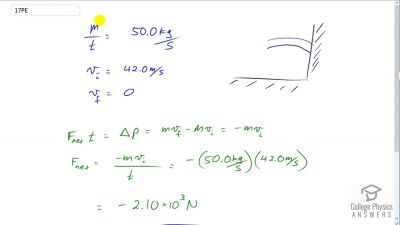 17PE
m/t = 50.0 kg/s
v_i = 42.0 m/s
v_f = 0
F_net t = Δp = mv_f - mv_i = -mv_i
F_net = -mv_i/t = -(50.0 kg/s)(42.0 m/s)
= -2.10 × 10^3 N
College Physics
ANSWERS